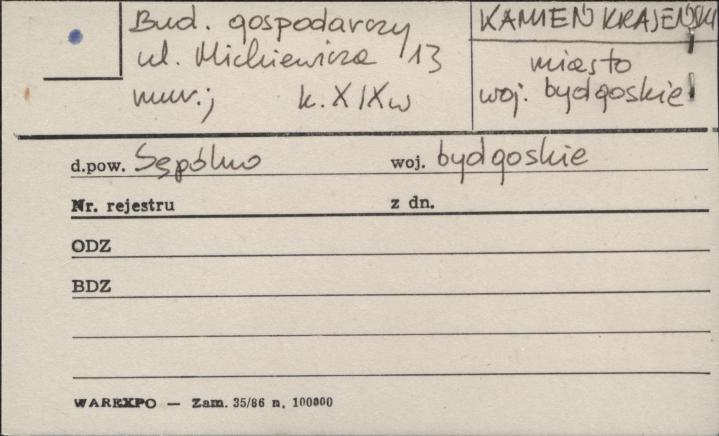 Bud. gospodarczy
ul. Mickiewicza 13
mur.; k. XIXw
KAMIEŃ KRAJEŃSKI
miasto
woj. bydgoskie
d.pow. Sępólno woj. bydgoskie
Nr. rejestru z dn.
ODZ
BDZ
WAREXPO — Zam. 35/86 n. 100000